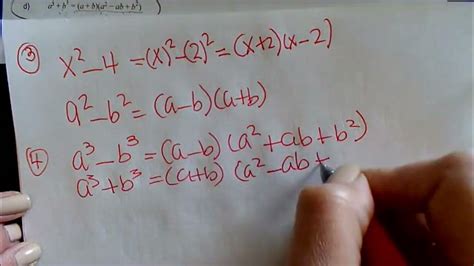 d) a³ + b³ = (a+b)(a² − ab + b²)
③ x² − 4 = (x)² − (2)² = (x+2)(x−2)
a² − b² = (a−b)(a+b)
④ a³ − b³ = (a−b) (a² + ab + b²)
a³ + b³ = (a+b) (a² − ab +